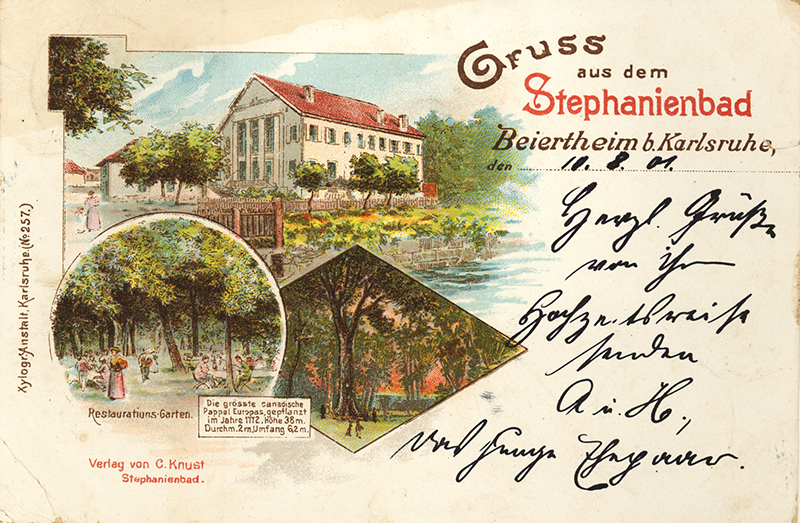 Gruss
aus dem
Stephanienbad
Beiertheim b. Karlsruhe,
den 10. 8. 01.
Herzl. Grüße
von ihr
Hochzeitsreise
senden
A. u. H.,
Das junge Ehepaar.
Xylogr. Anstalt, Karlsruhe. (No 257.)
Restaurations-Garten.
Die grösste canadische
Pappel Europas, gepflanzt
im Jahre 1772, Höhe 38 m.
Durchm. 2 m, Umfang 6,2 m.
Verlag von C. Knust
Stephanienbad.